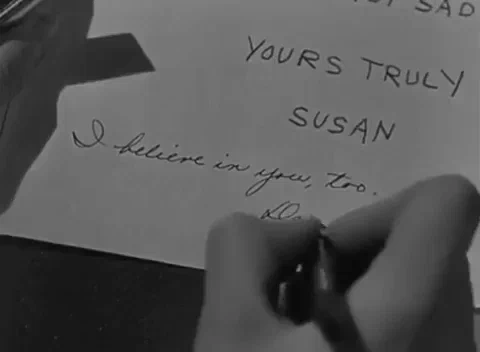 SAD
YOURS TRULY
SUSAN
I believe in you, too.